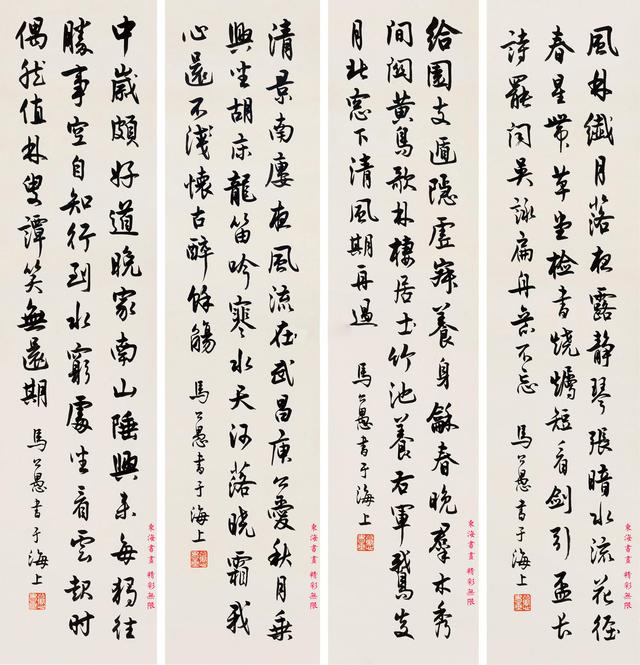 風林纖月落衣露靜琴張暗水流花徑
春星帶草堂檢書燒燭短看劍引盃長
詩罷聞吳詠扁舟意不忘 馬公愚書于海上
東海書畫 精彩無限
給園支遁隱虛寂養身龢春晚羣木秀
間關黃鳥歌林棲居士竹池養右軍鵞炎
月北窓下清風期再過 馬公愚書于海上
東海書畫 精彩無限
清景南樓夜風流在武昌庾公愛秋月乘
興坐胡床龍笛吟寒水天河落曉霜我
心還不淺懷古醉餘觴 馬公愚書于海上
東海書畫 精彩無限
中歲頗好道晚家南山陲興來每獨往
勝事空自知行到水窮處坐看雲起時
偶然值林叟譚笑無還期 馬公愚書于海上
東海書畫 精彩無限